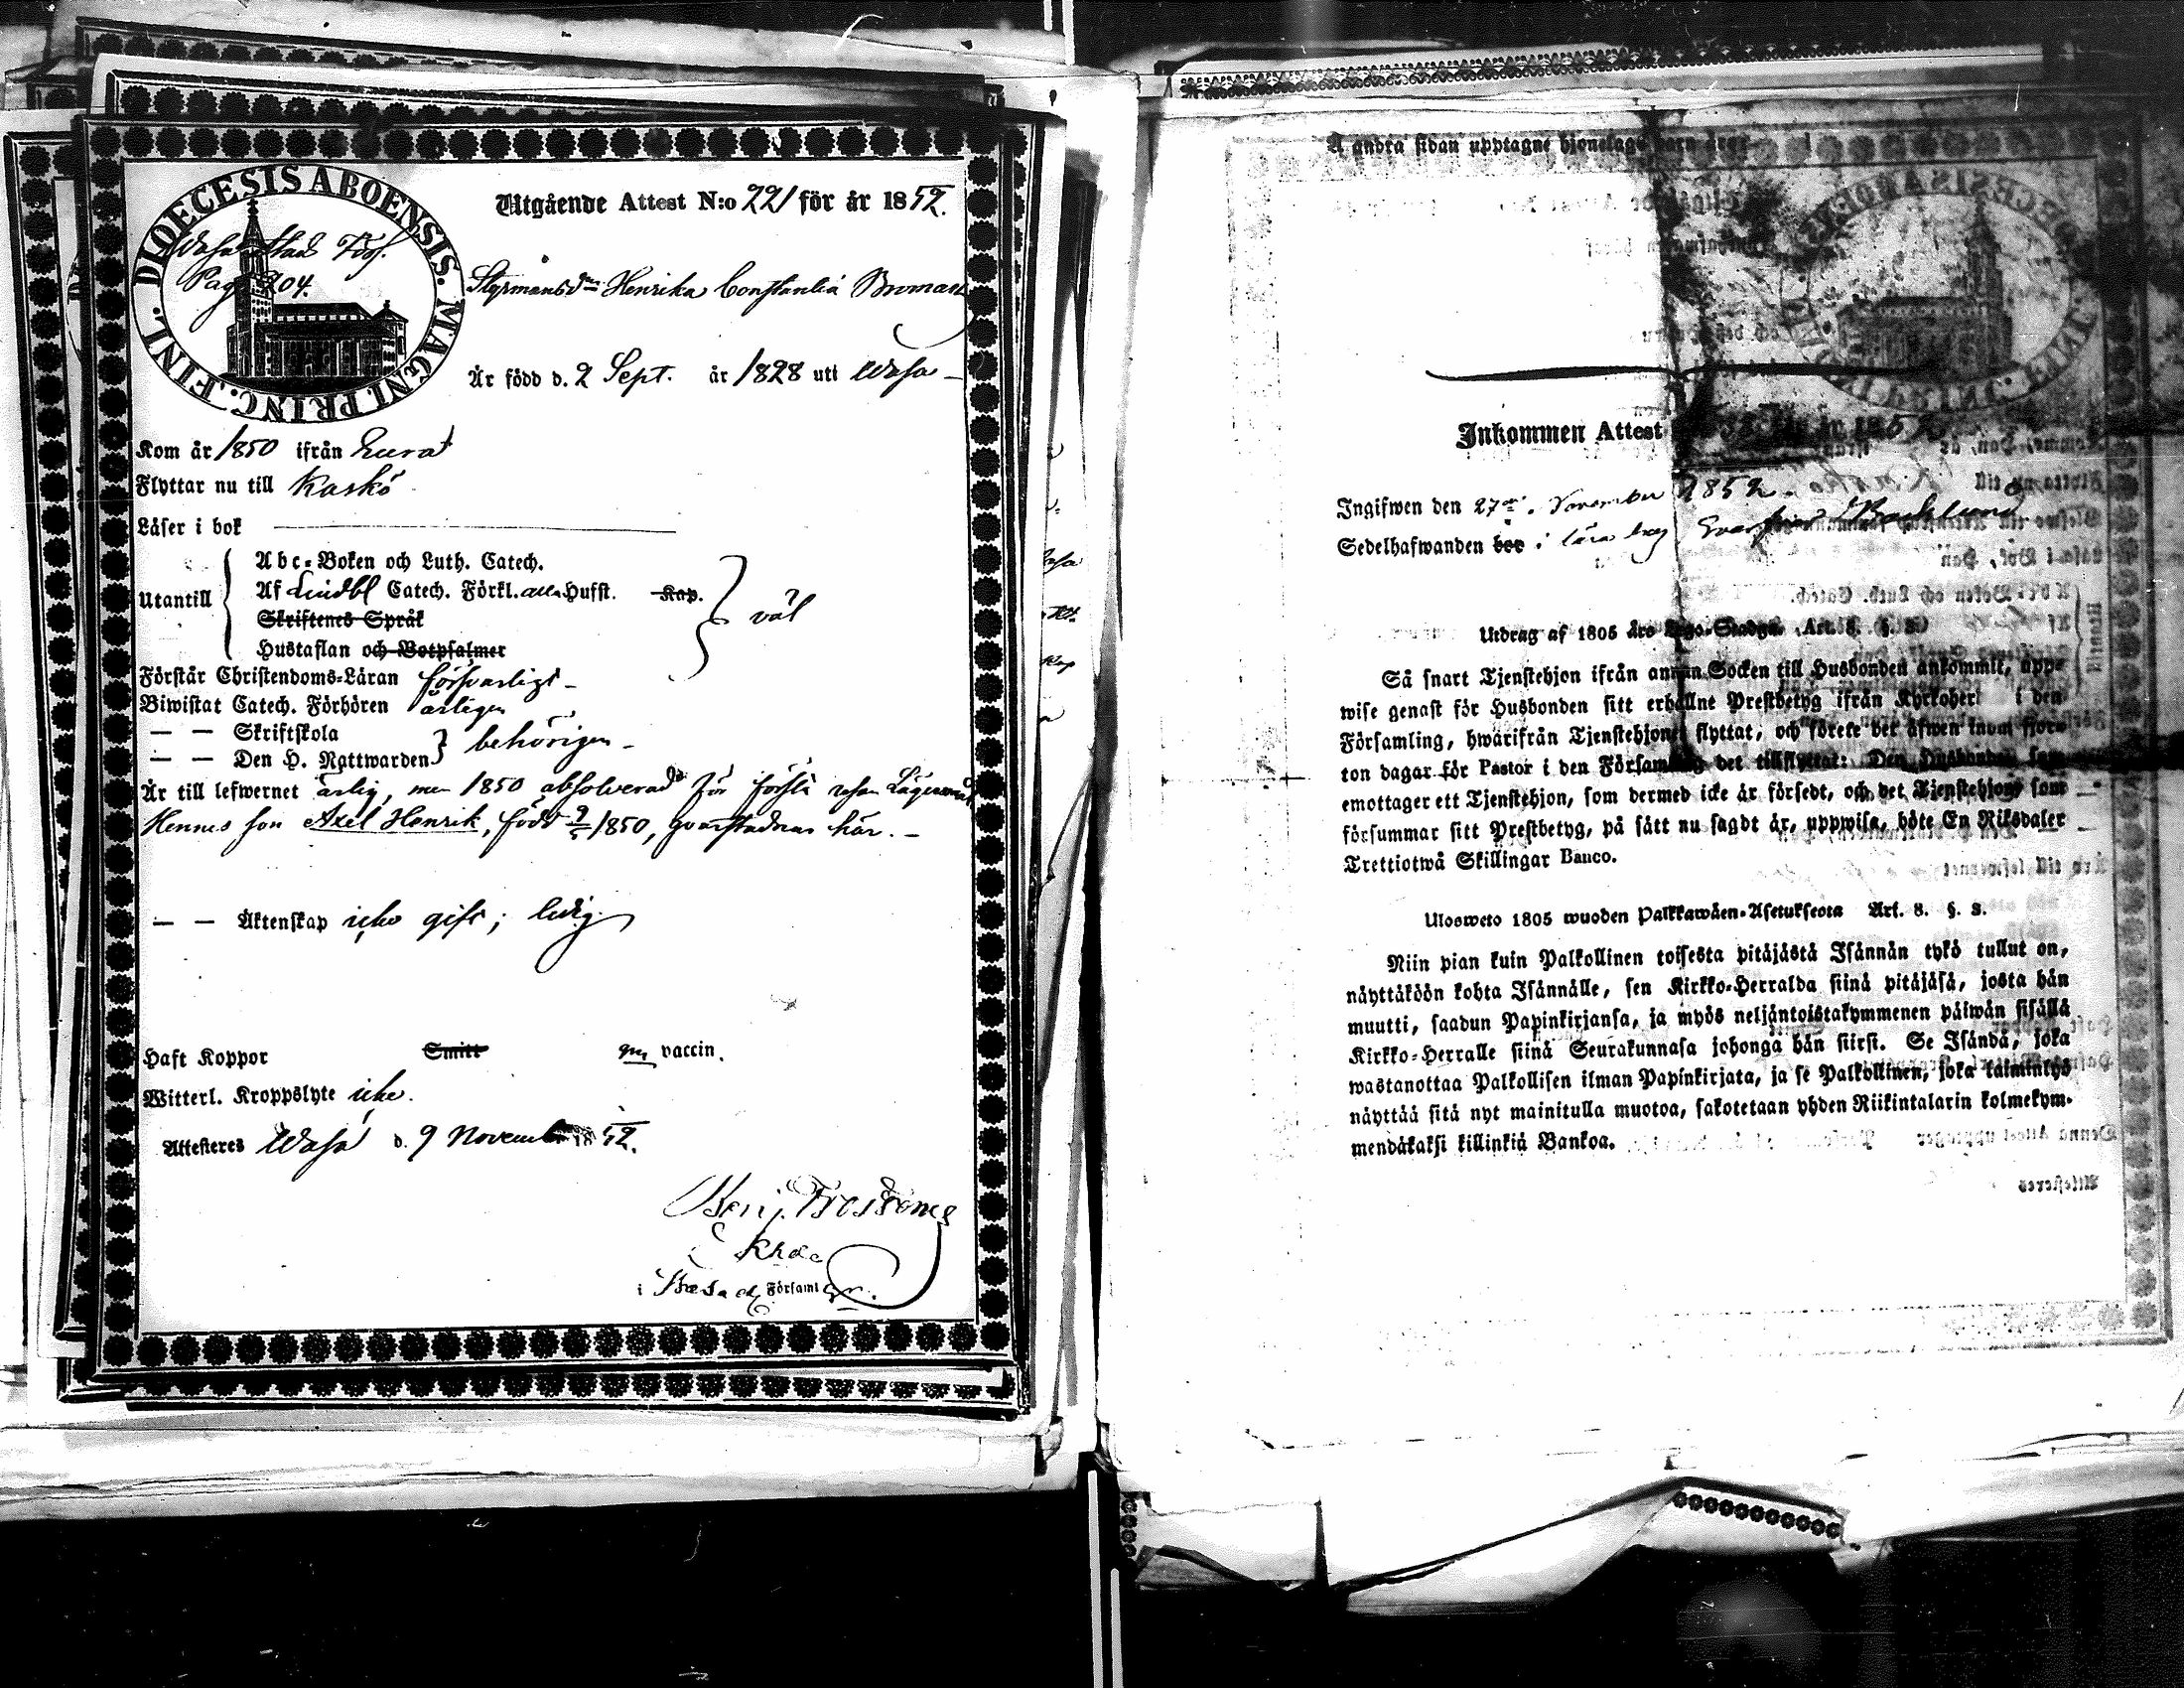 DIOECESIS ABOENSIS. MAGNI PRINC. FINL.
Wasa Stad
Pag. 204.
Utgående Attest N:o 221 för år 1852.
Styrmansdn Henrika Constantia Broman
Är född d. 2 Sept. år 1828 uti Wasa
Kom år 1850 ifrån Eura
Flyttar nu till Kaskö
Läser i bok
Utantill
Abc-Boken och Luth. Catech.
Af Lindbl Catech. Förkl. alla Hufst. Kap.
Skriftenes Språk
Hustaflan och Botpsalmer
väl
Förstår Christendoms-Läran försvarligt
Biwistat Catech. Förhören årligen
— — Skriftskola
— — Den H. Nattwarden
behörigen
Är till lefwernet ärlig, men 1850 absolverad för första resan Lägersmål
Hennes son Axel Henrik, född 9/5 1850, qvarstadnar här.
— — Äktenskap icke gift; ledig
Haft Koppor Smitt vaccin.
Witterl. Kroppslyte icke.
Attesteres Wasa d. 9 November 1852.
Benj.
Khde
i Wasa Församl
Å andra sidan upptagne hjonelags barn äro:
Inkommen Attest
Ingifwen den 27de November 1852.
Sedelhafwanden bor i lära hos Backlund
Utdrag af 1805 års Lego-Stadga, Art. 8. §. 3.
Så snart Tjenstehjon ifrån annan Socken till Husbonden ankommit, upp-
wise genast för Husbonden sitt erhållne Prestbetyg ifrån Kyrkoher i den
Församling, hwarifrån Tjenstehjonet flyttat, och förete det äfwen inom fjor-
ton dagar för Pastor i den Församling det tillflyttat: Den Husbonde som
emottager ett Tjenstehjon, som dermed icke är försedt, och det Tjenstehjon som
försummar sitt Prestbetyg, på sätt nu sagdt är, uppwisa, böte En Riksdaler
Trettiotwå Skillingar Banco.
Ulosweto 1805 wuoden Palkkawäen-Asetuksesta Art. 8. §. 3.
Niin pian kuin Palkollinen toisesta pitäjästä Isännän tykö tullut on,
näyttäköön kohta Isännälle, sen Kirkko-Herralda siinä pitäjäsä, josta hän
muutti, saadun Papinkirjansa, ja myös neljäntoistakymmenen päiwän sisällä
Kirkko-Herralle siinä Seurakunnasa johonga hän siirst. Se Isändä, joka
wastanottaa Palkollisen ilman Papinkirjata, ja se Palkollinen, joka laiminlyö
näyttää sitä nyt mainitulla muotoa, sakotetaan yhden Riikintalarin kolmekym-
mendäkaksi killinkiä Bankoa.